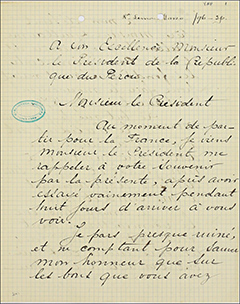 A Son Excellence Monsieur
le Président de la Républi
que du Pérou
Monsieur le Président
Au moment de par-
tir pour la France, je viens
Monsieur le Président, me
rappeler à votre souvenir
par la présente, après avoir
essayé vainement pendant
huit jours d'arriver à vous
voir.
Je pars presque ruiné,
et ne comptant pour sauver
mon honneur que sur
les bons que vous avez